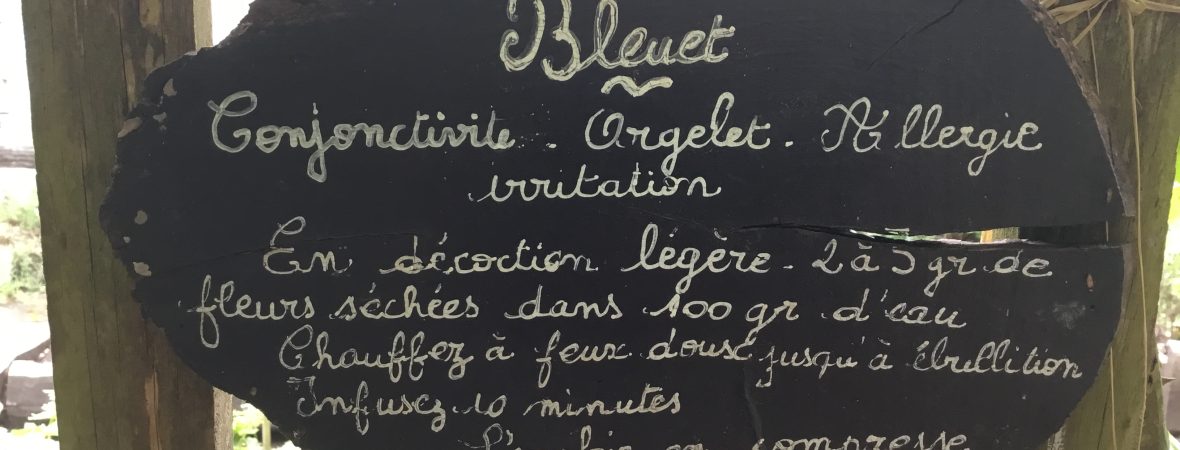 Bleuet
Conjonctivite. Orgelet. Allergie
irritation
En décoction légère. 2 à 5 gr de
fleurs séchées dans 100 gr d'eau
Chauffez à feux doux jusqu'à ébullition
Infusez 10 minutes
en compresse